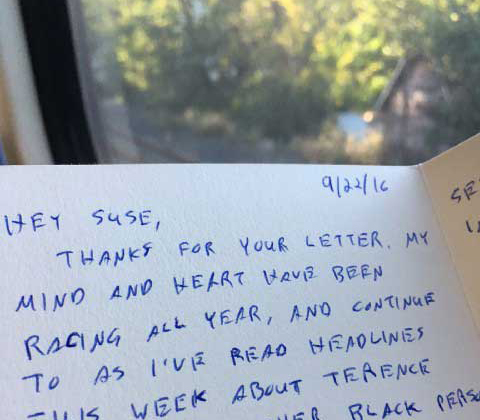 9/22/16
HEY SUSE,
THANKS FOR YOUR LETTER. MY
MIND AND HEART HAVE BEEN
RACING ALL YEAR, AND CONTINUE
TO AS I'VE READ HEADLINES
THIS WEEK ABOUT TERENCE
BLACK PERSO